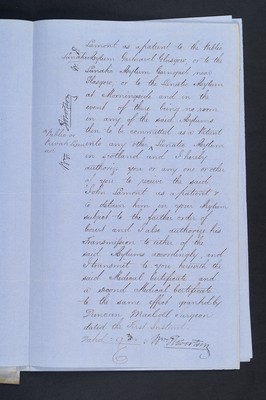 Lamont as a patient to the Public
Lunatic Asylum Gartnavel Glasgow, or to the
Lunatic Asylum Gangad near
Glasgow, or to the Lunatic Asylum
at Morningside and in the
event of there being no room
in any of the said Asylums
then to be transmitted as a Patient
into any other Lunatic Asylum
in Scotland and I hereby
authorize you or any one or other
of you to receive the said
John Lamont as a patient &
to detain him in your Asylum
subject to the further order of
Court and I also authorize his
Transmission to either of the
said Asylums accordingly and
to transmit to you herewith the
said Medical Certificate and
a second Medical Certificate
to the same effect granted by
Duncan Surgeon
dated the first Instant